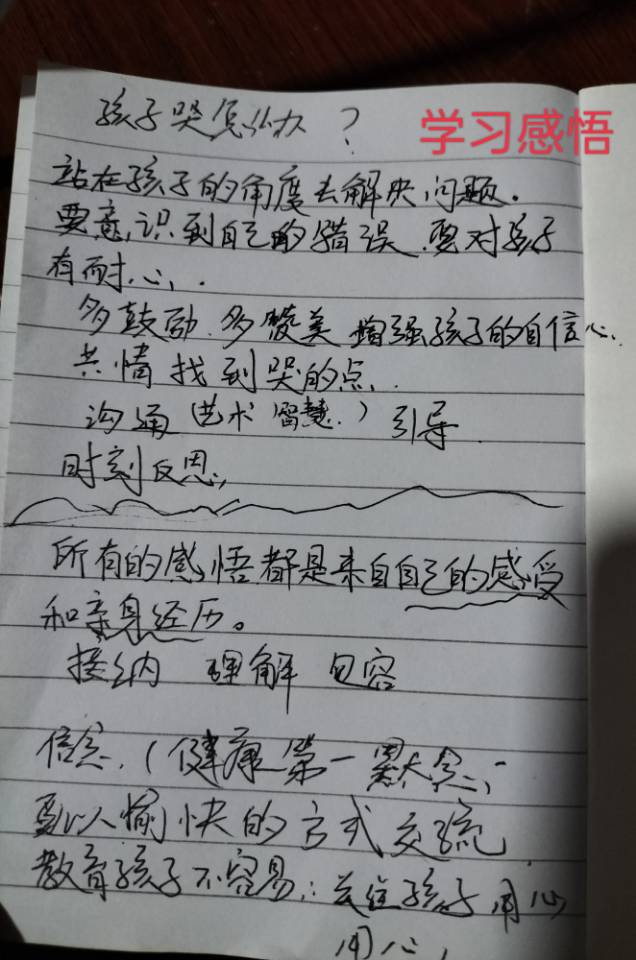 孩子哭怎么办？
学习感悟
站在孩子的角度去解决问题。
要意识到自己的错误.要对孩子
有耐心.
多鼓励.多赞美 增强孩子的自信心.
共情 找到哭的点.
沟通（艺术 智慧.）引导
时刻反思,
所有的感悟都是来自自己的感受
和亲身经历。
接纳 理解 包容
信念.（健康第一
要以愉快的方式交流
教育孩子不容易,: 关注孩子 用心
用心,